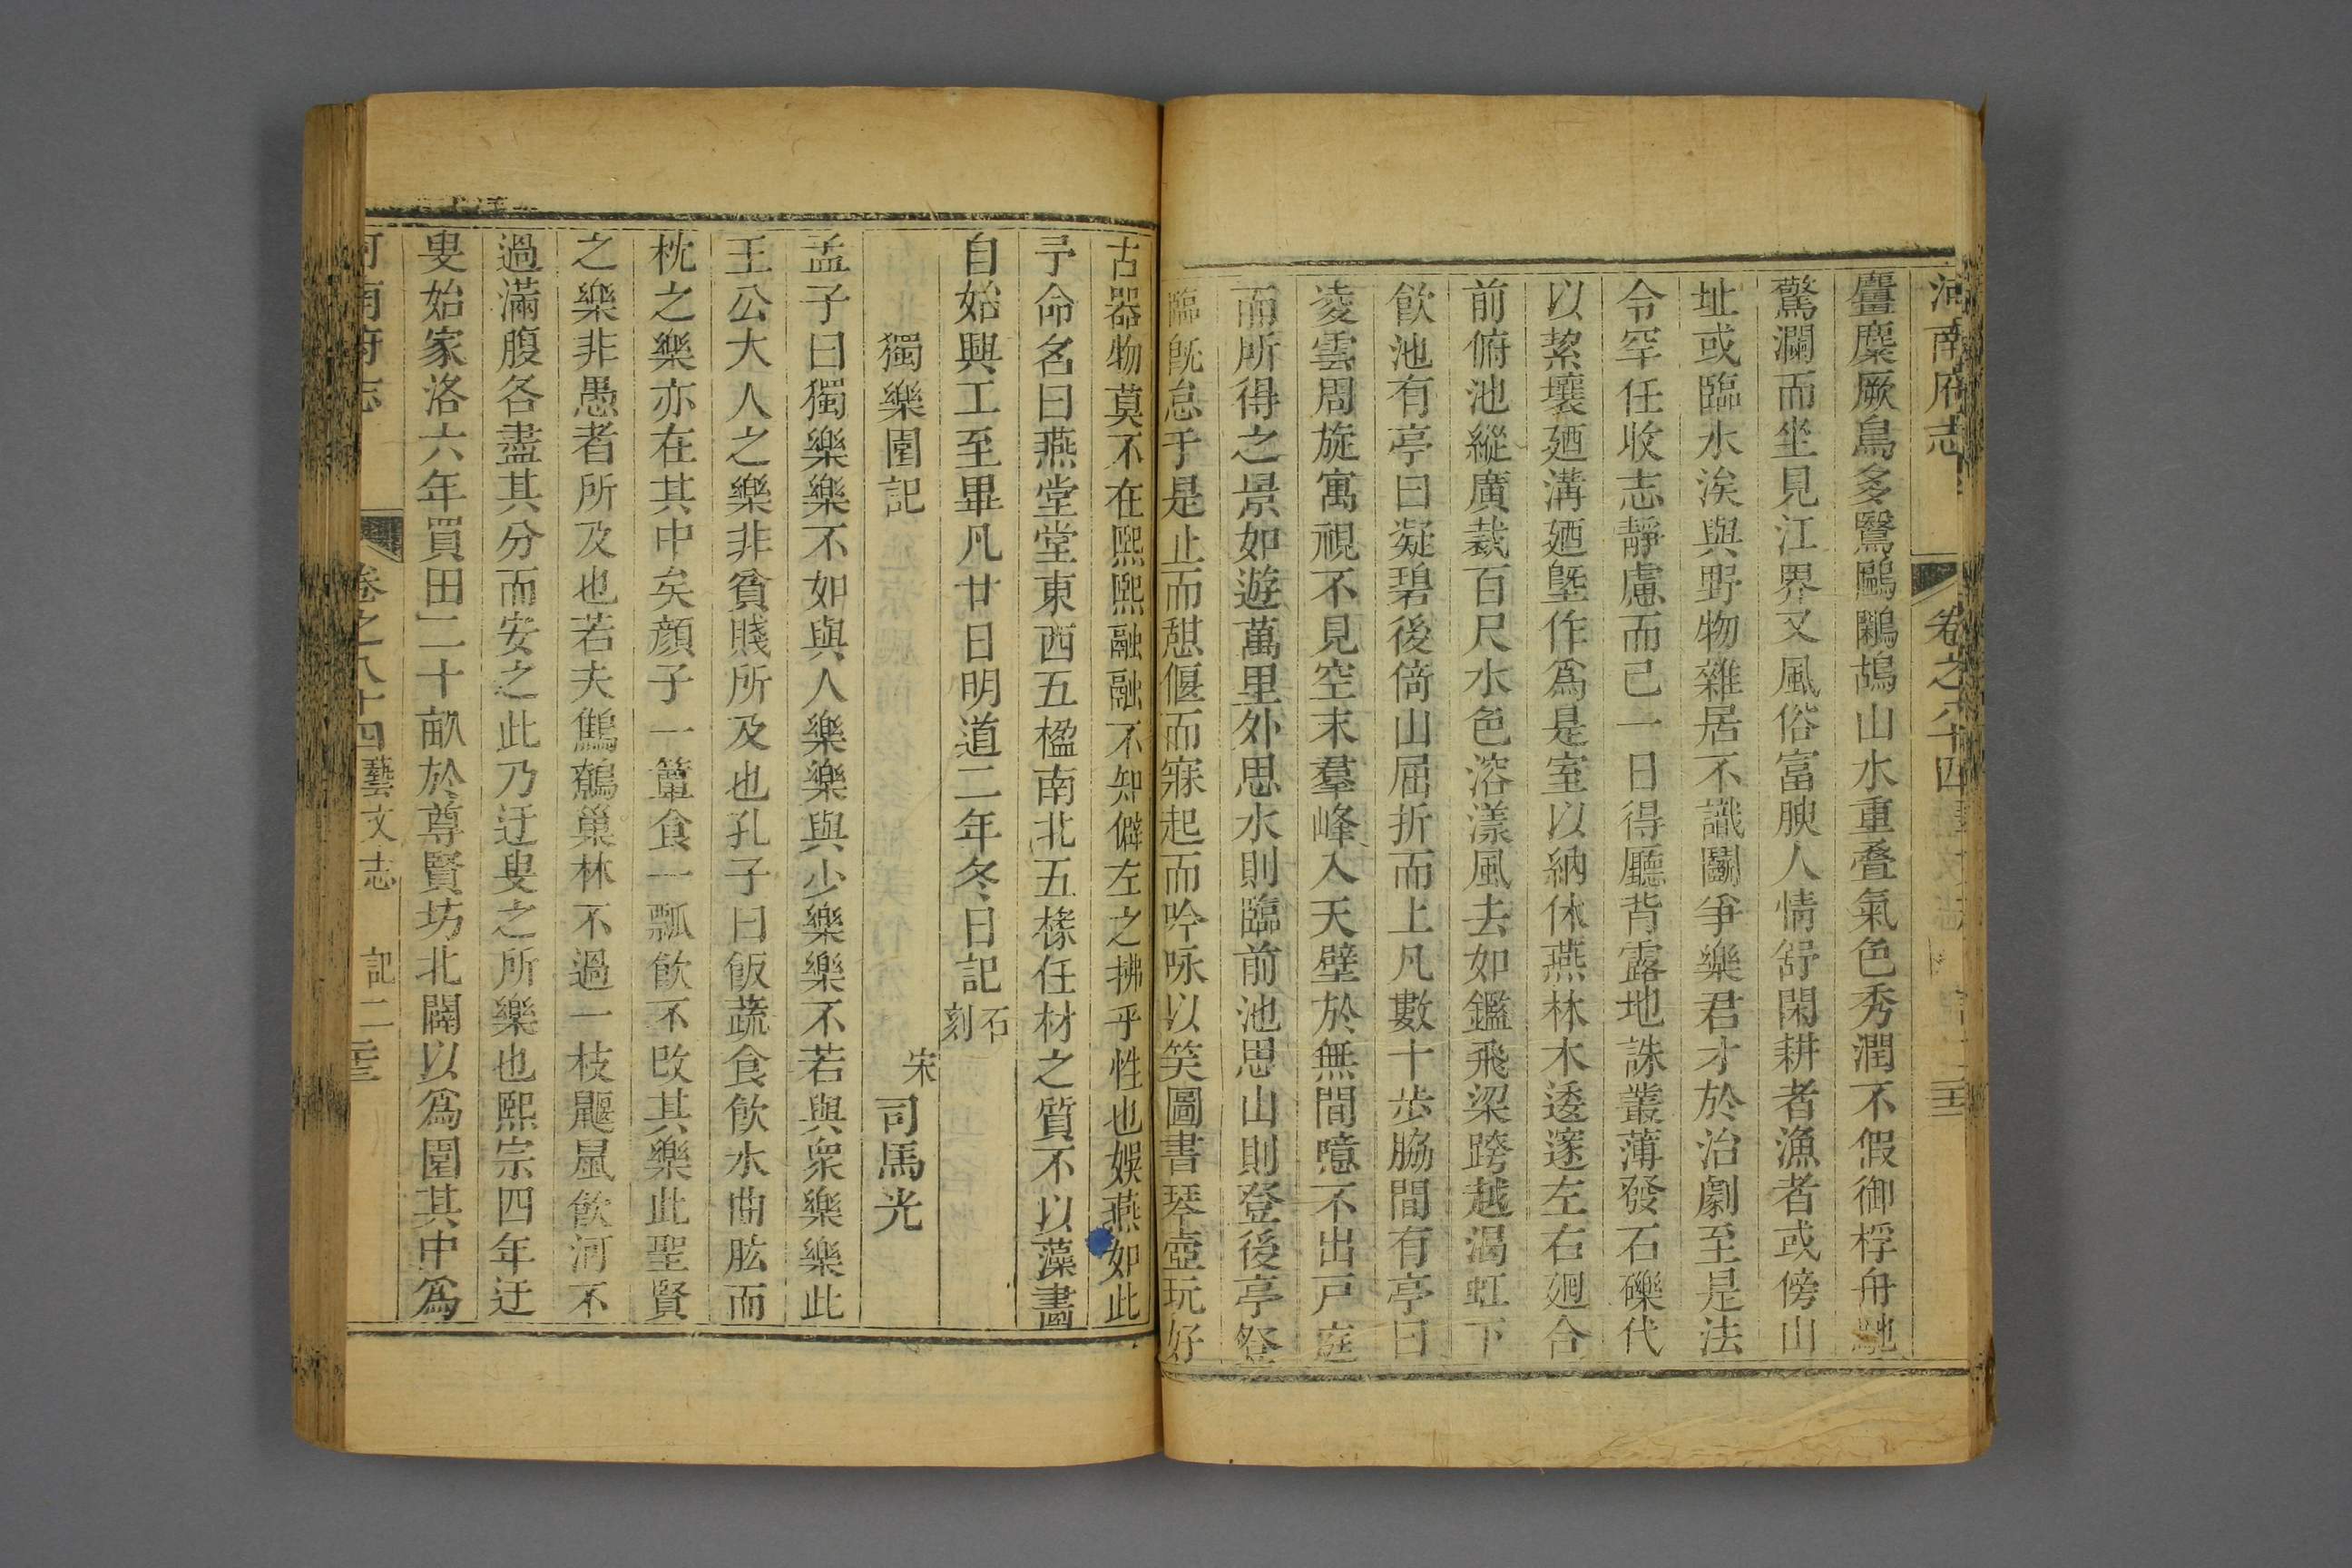 河南府志 卷之八十四
麠麋厥鳥多鷖鷗鷳鴣山水重疊氣色秀潤不假御桴舟馳
驚瀾而坐見江界又風俗富腴人情舒閑耕者漁者或傍山
址或臨水涘與野物雜居不識鬭爭樂君才於治劇至是法
令罕任收志靜慮而已一日得廳背露地誅叢薄發石礫代
以挈壤廼溝廼墍作為是室以納休燕林木逶邃左右廻合
前俯池縱廣裁百尺水色溶漾風去如鑑飛梁跨越渴虹下
飲池有亭曰凝碧後倚山屈折而上凡數十步脇間有亭曰
凌雲周旋寓視不見空末羣峰入天壁於無間噫不出戸庭
而所得之景如遊萬里外思水則臨前池思山則登後亭登
臨旣怠于是止而憇偃而寐起而吟咏以笑圖書琴壺玩好
古器物莫不在熙熙融融不知僻左之拂乎性也娛燕如此
予命名曰燕堂堂東西五楹南北五椽任材之質不以藻畵
自始興工至畢凡廿日明道二年冬日記石刻
獨樂園記 宋司馬光
孟子曰獨樂樂不如與人樂樂與少樂樂不若與衆樂樂此
王公大人之樂非貧賤所及也孔子曰飯蔬食飮水曲肱而
枕之樂亦在其中矣顔子一簞食一瓢飮不改其樂此聖賢
之樂非愚者所及也若夫鷦鷯巢林不過一枝鼴鼠飮河不
過滿腹各盡其分而安之此乃迂叟之所樂也熙宗四年迂
叟始家洛六年買田二十畝於尊賢坊北闢以爲園其中爲
河南府志 卷之八十四 藝文志 記二